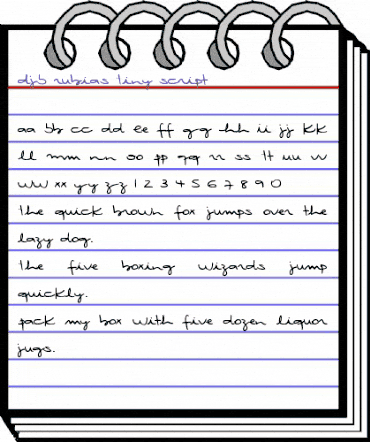 djb rubias tiny script
aa bb cc dd ee ff gg hh ii jj kk
ll mm nn oo pp qq rr ss tt uu vv
ww xx yy zz 1 2 3 4 5 6 7 8 9 0
the quick brown fox jumps over the
lazy dog.
the five boxing wizards jump
quickly.
pack my box with five dozen liquor
jugs.